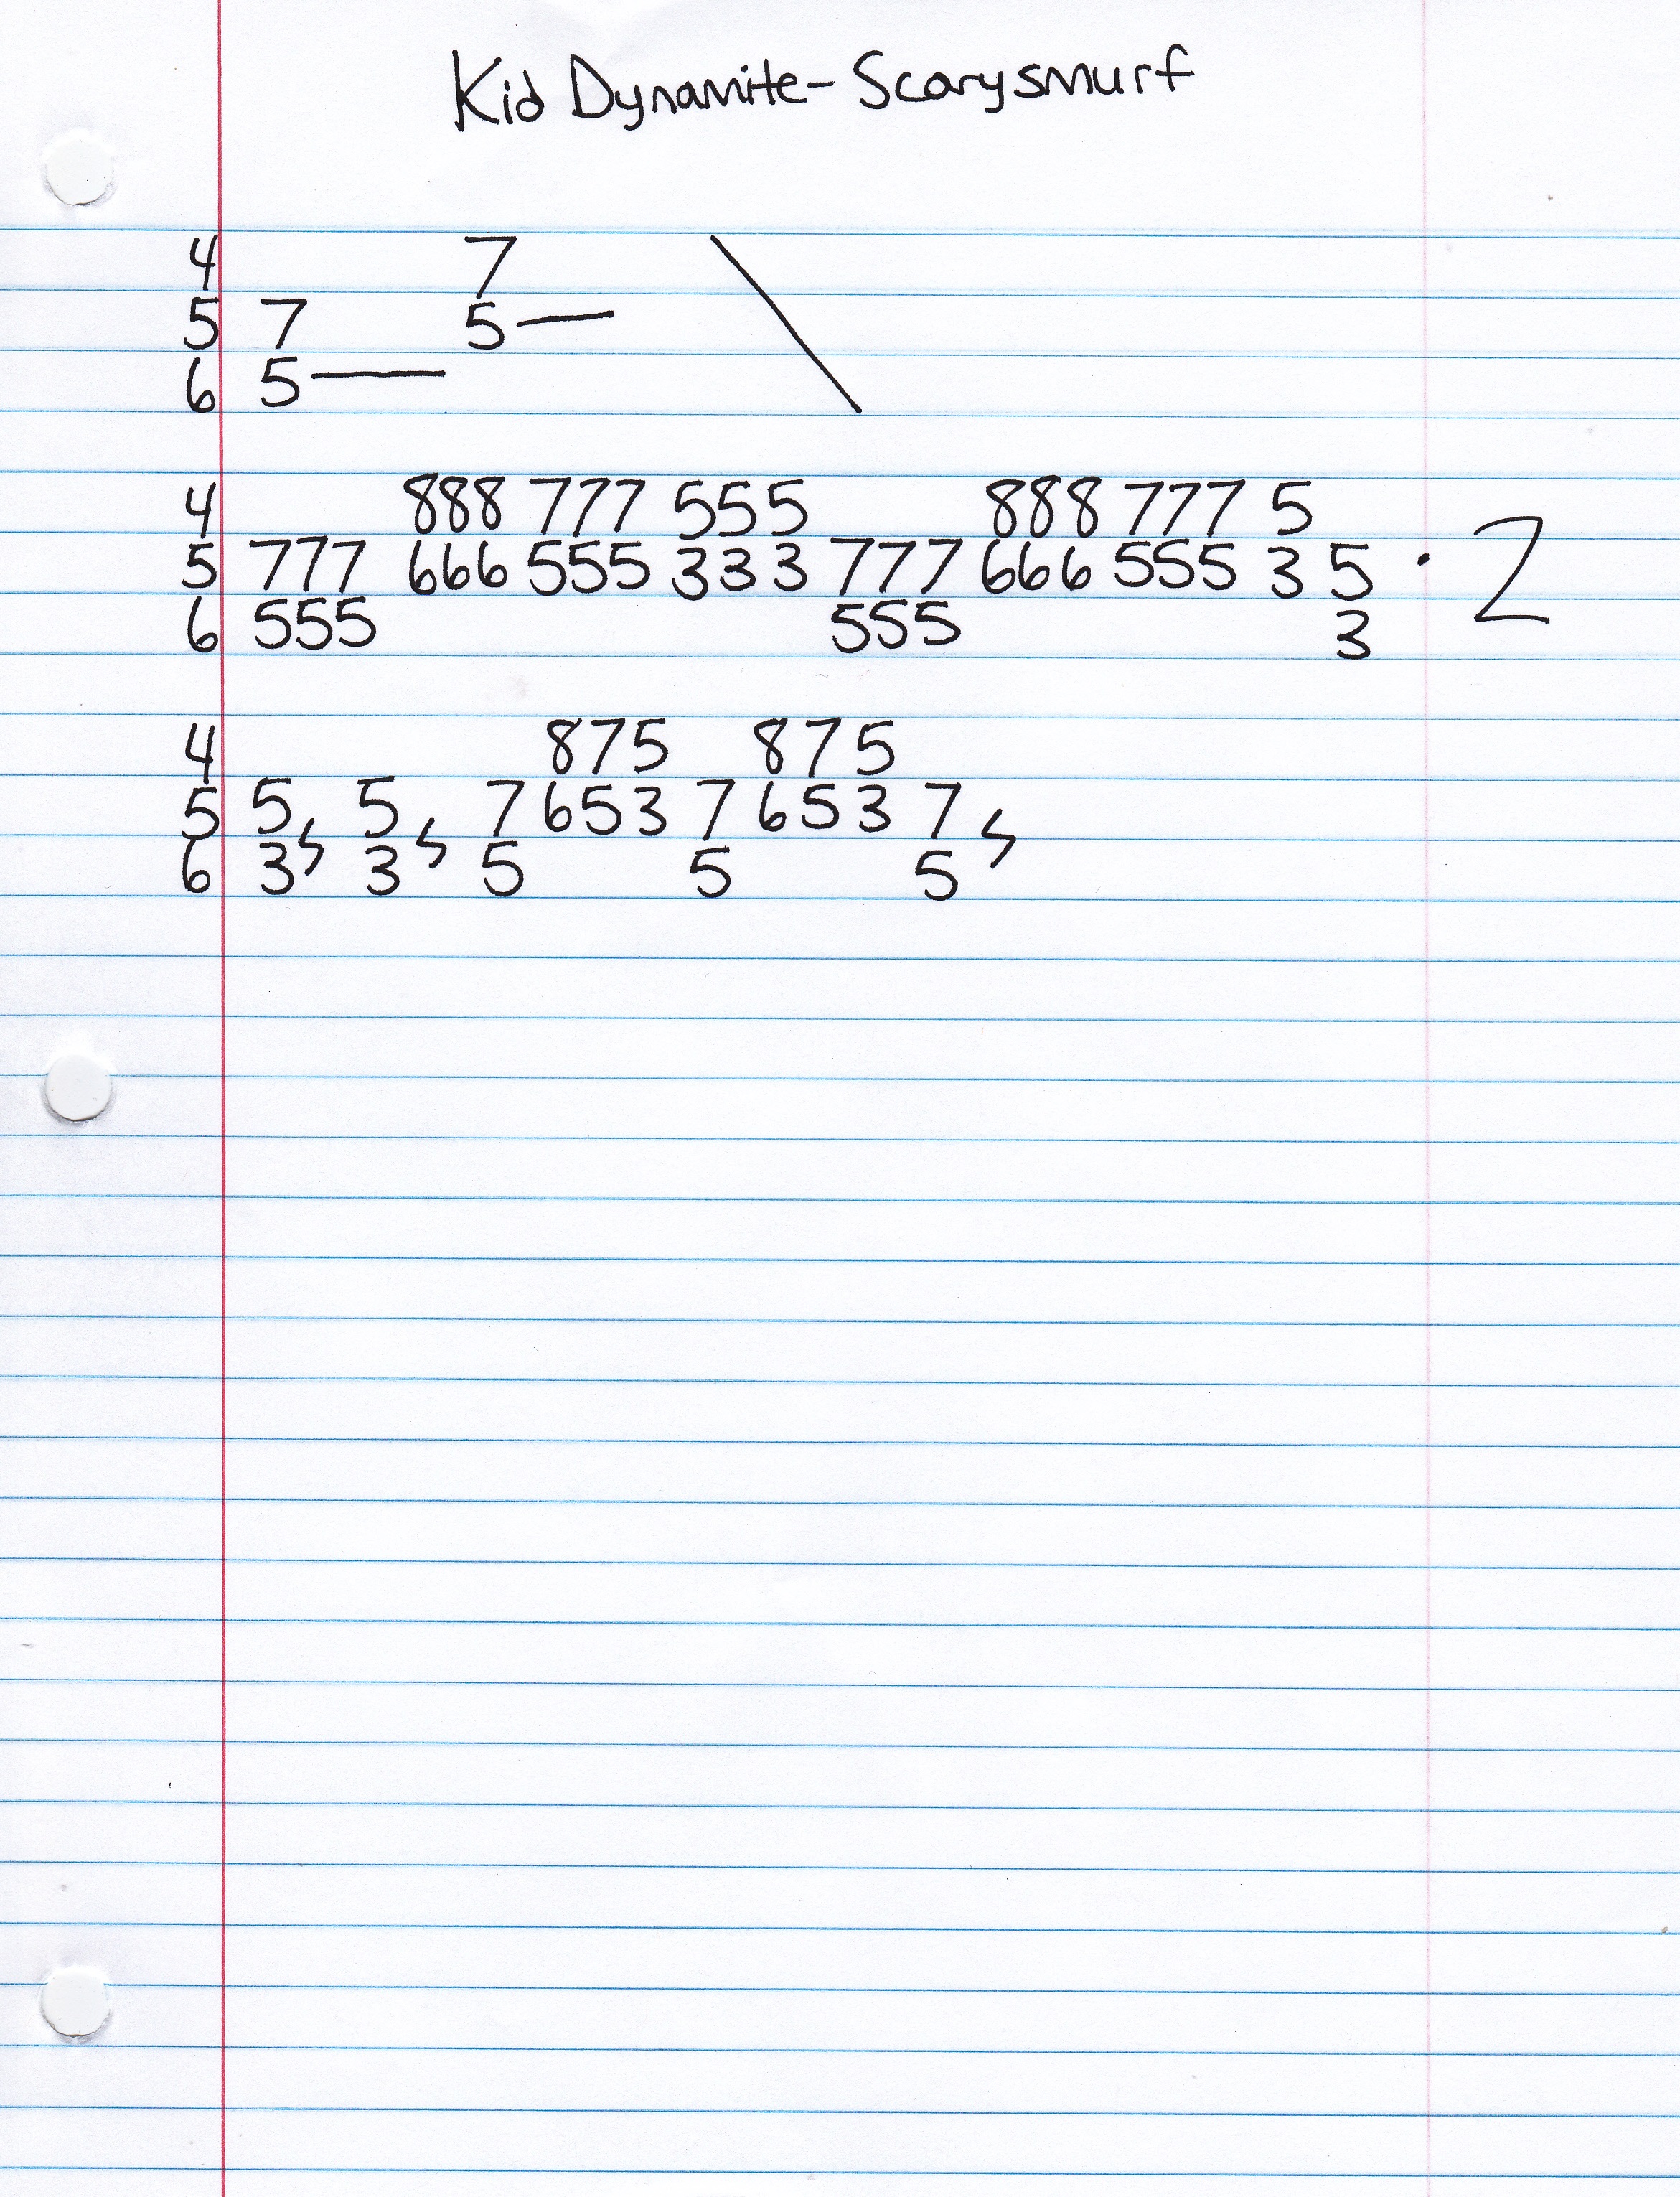 Kid Dynamite - Scarysmurf
4 7
5 7 5 —
6 5 —
4 888 777 555 888 777 5
5 777 666 555 333 777 666 555 3 5 · 2
6 555 555 3
4 875 875
5 5, 5, 7 653 7 653 7
6 3 3 5 5 5